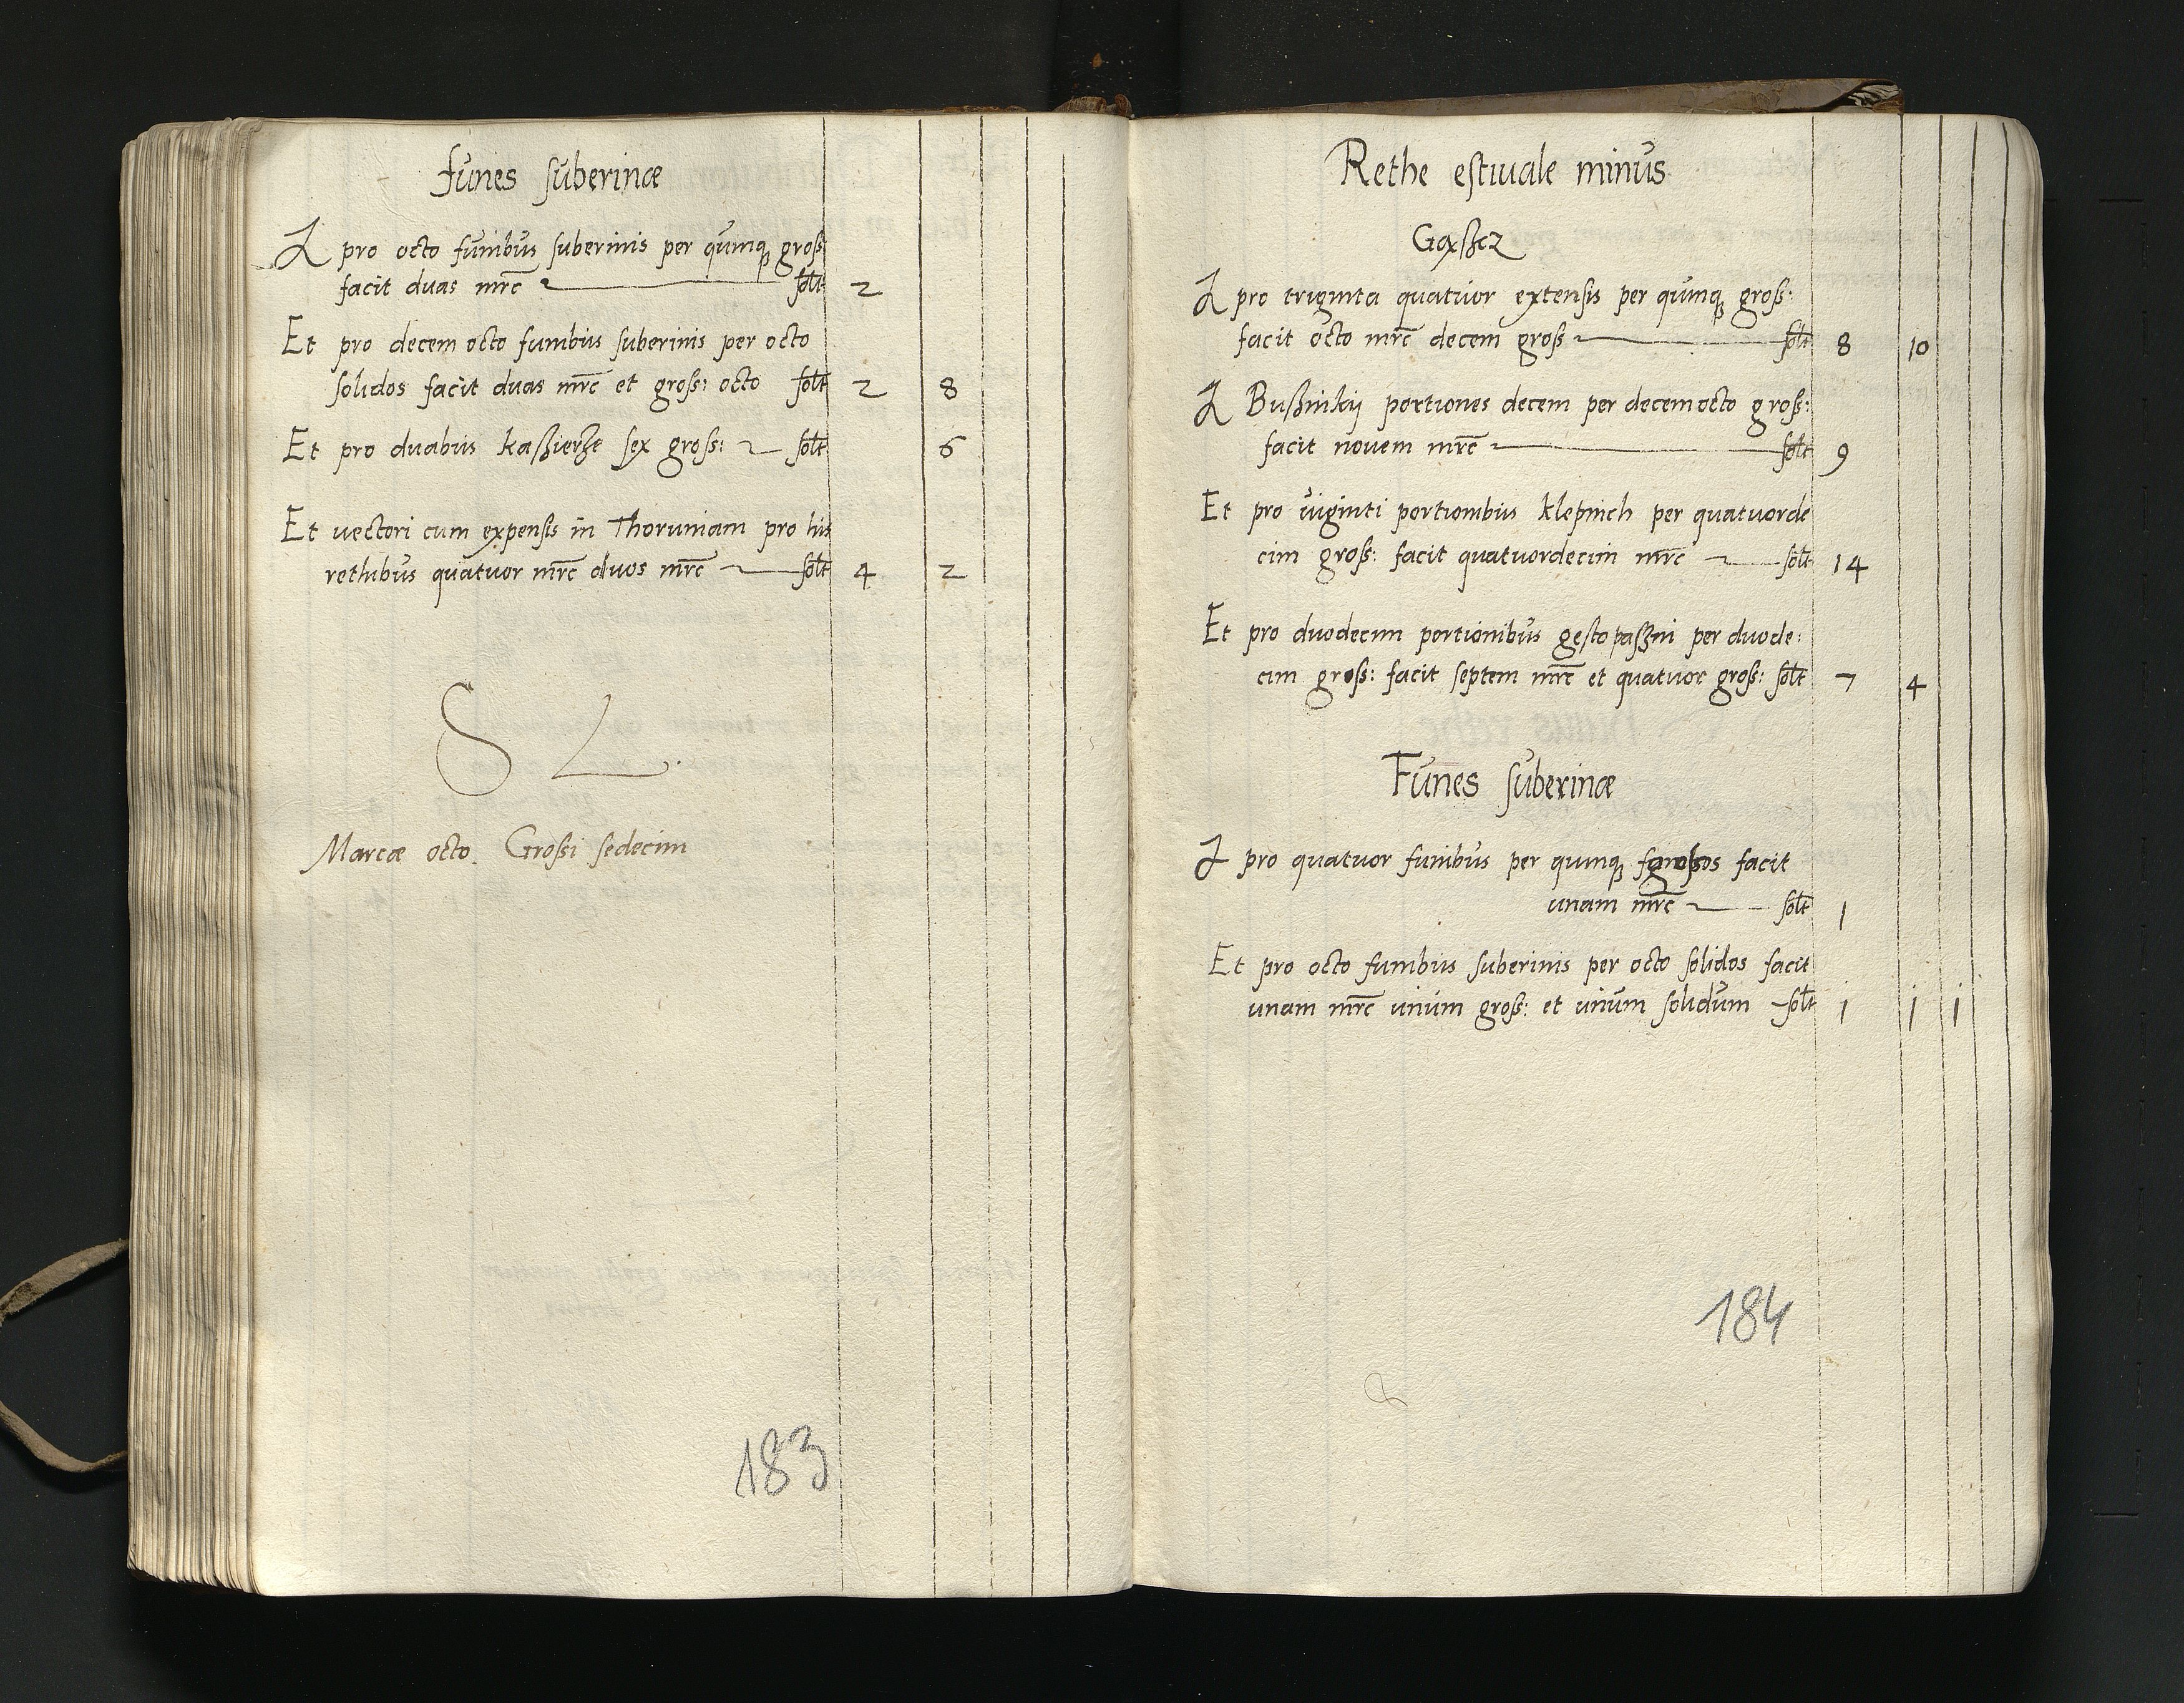 funes suberinæ
A pro octo funibus suberinis per quinque gross
facit duas mrc solt 2
Et pro decem octo funibus suberinis per octo
solidos facit duas mrc et gross: octo solt 2 8
Et pro duabus kaßierze sex gross: solt 6
Et vectori cum expensis in Thoruniam pro his
rethibus quatuor mrc duos mrc solt 4 2
S L
Marcæ octo Grossi sedecim
183
Rethe estivale minus
A pro triginta quatuor extensis per quinque gross:
facit octo mrc decem gross solt 8 10
A Bußinkij portiones decem per decemocto gross:
facit novem mrc solt 9
Et pro viginti portionibus klepinch per quatuorde
cim gross: facit quatuordecim mrc solt 14
Et pro duodecim portionibus gestopaßni per duode:
cim gross: facit septem mrc et quatuor gross: solt 7 4
Funes suberinæ
A pro quatuor funibus per quinque grossos facit
unam mrc solt 1
Et pro octo funibus suberinis per octo solidos facit
unam mrc unum gross: et unum solidum solt 1 1 1
184